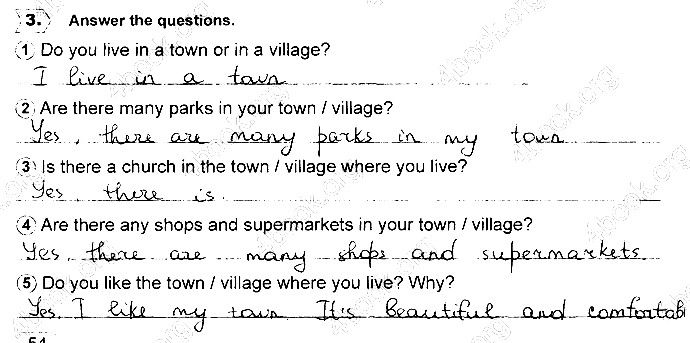 3. Answer the questions.
1 Do you live in a town or in a village?
I live in a town
2 Are there many parks in your town / village?
Yes, there are many parks in my town
3 Is there a church in the town / village where you live?
Yes there is
4 Are there any shops and supermarkets in your town / village?
Yes, there are many shops and supermarkets
5 Do you like the town / village where you live? Why?
Yes. I like my town It's beautiful and comfortabl
54
4book.org